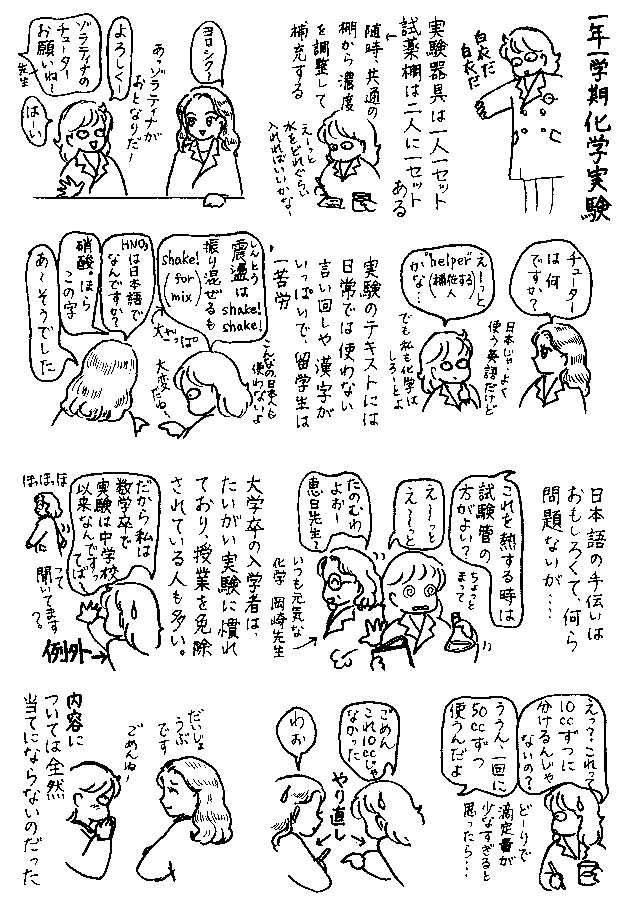 一年一学期化学実験
白衣だ
白衣だ
実験器具は一人一セット
試薬棚は二人に一セット
ある
随時、共通の
棚から濃度
を調整して
補充する
えーっと
水をどれぐらい
入れればいいかな〜
ヨロシク〜
あっゾラティナが
おとなりだー
よろしくー
ゾラティナの
チューター
お願いね〜
先生
はーい
チューター
は何
ですか?
日本じゃよく
使う英語だけど
えーっと
"helper"
(補佐する人)
かな…
でも私も化学は
しろーとよ
実験のテキストには
日常では使わない
言い回しや漢字が
いっぱいで、留学生は
一苦労
しんとう
震盪は
振り混ぜるも
shake!
shake!
shake!
(for mix)
大ざっぱ
こんなの日本人も
使わないよ
大変だね〜
HNO₃
は日本語で
なんですか?
硝酸。ほら
この字
あ〜そうでした
日本語の手伝いは
おもしろくて、何ら
問題ないが……
これを熱する時は
試験管の
方がよい?
ちょっと
まって
え〜っと
え〜っと
たのむわ
よおー
恵日先生〜
いつも元気な
化学 岡崎先生
大学卒の入学者は、
たいがい実験に慣れ
ており、授業を免除
されている人も多い。
だから私は
数学卒で
実験は中学校
以来なんですっ
てば
って
聞いてます
?。
ほっほっほ
例外→
えっ?これって
10ccずつに
分けるんじゃ
ないの?
ううん、一回に
50ccずつ
使うんだよ
どーりで
滴定量が
少なすぎると
思ったら…
ごめん
これ10ccじゃ
なかった
やり直し
わお
だいじょ
うぶ
です
ごめんね〜
内容に
ついては全然
当てにならないのだった